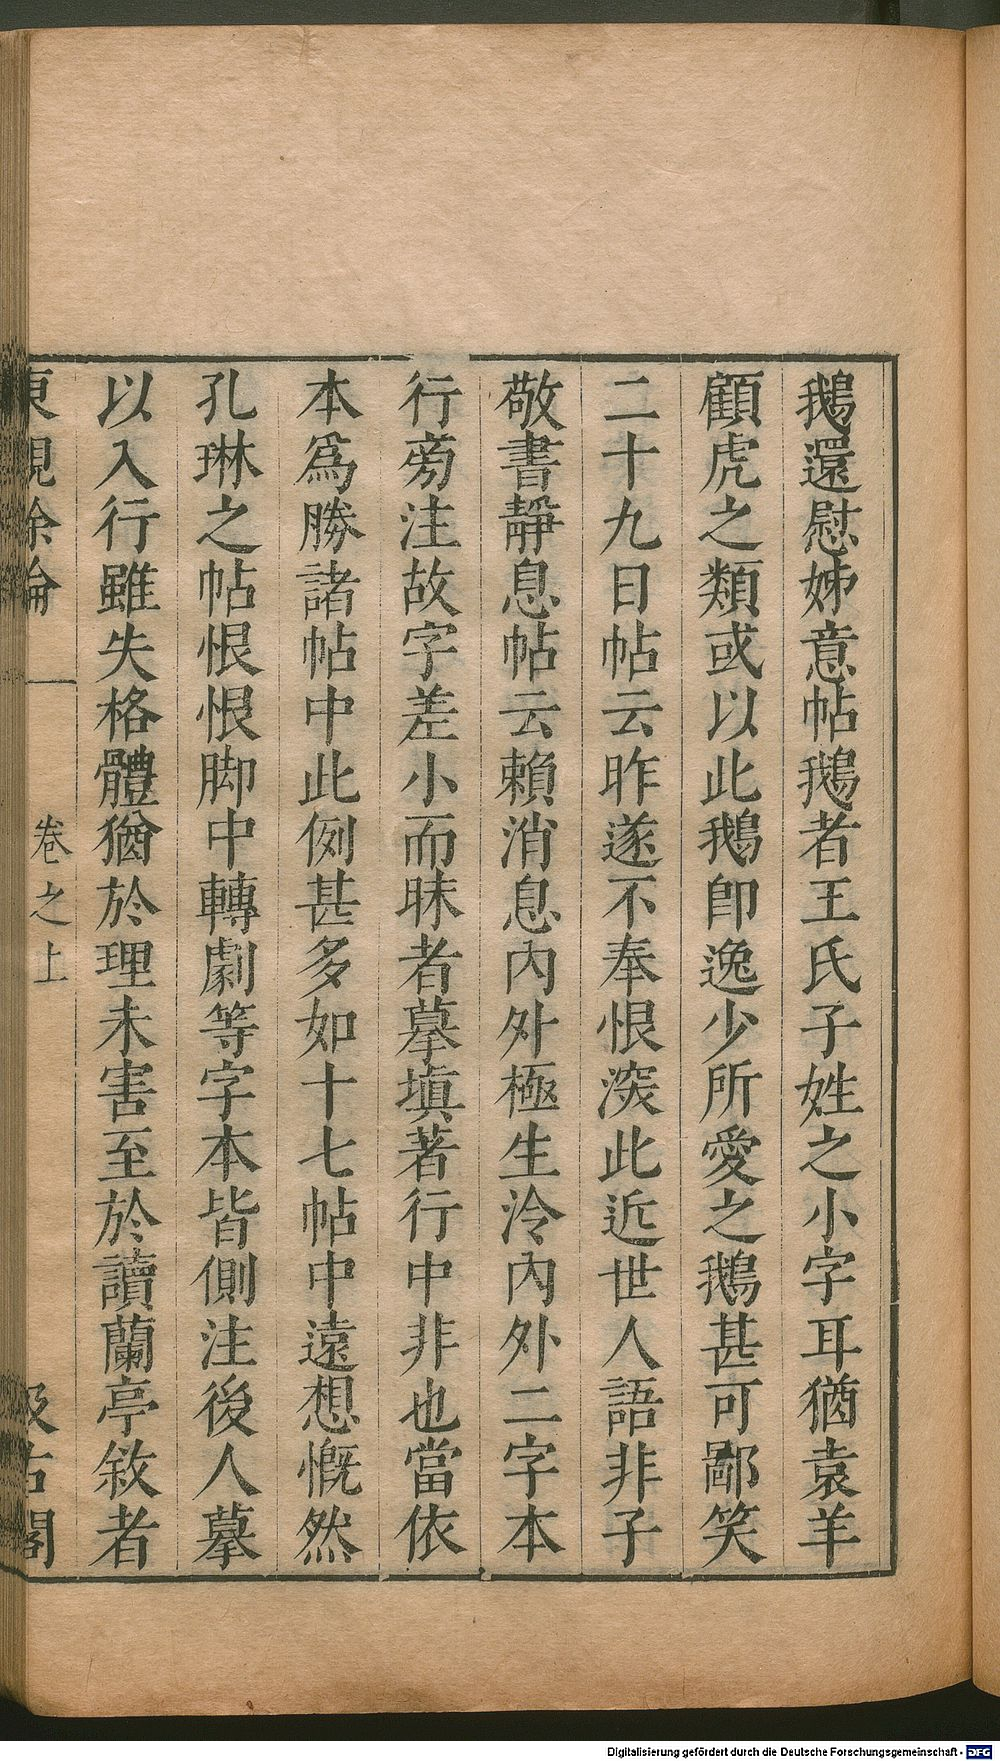 鵝還慰姊意帖鵝者王氏子姓之小字耳猶袁羊
顧虎之類或以此鵝卽逸少所愛之鵝甚可鄙笑
二十九日帖云昨遂不奉恨深此近世人語非子
敬書靜息帖云賴消息內外極生冷內外二字本
行旁注故字差小而昧者摹塡著行中非也當依
本爲勝諸帖中此例甚多如十七帖中遠想慨然
孔琳之帖恨恨脚中轉劇等字本皆側注後人摹
以入行雖失格體猶於理未害至於讀蘭亭敘者
東觀餘論
卷之上
汲古閣
Digitalisierung gefördert durch die Deutsche Forschungsgemeinschaft - DFG